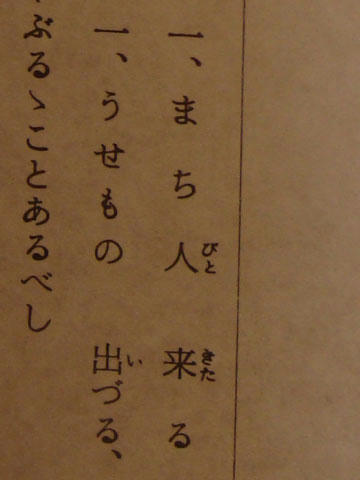 一、まち人 来る
一、うせもの 出づる、
ぶるゝことあるべし